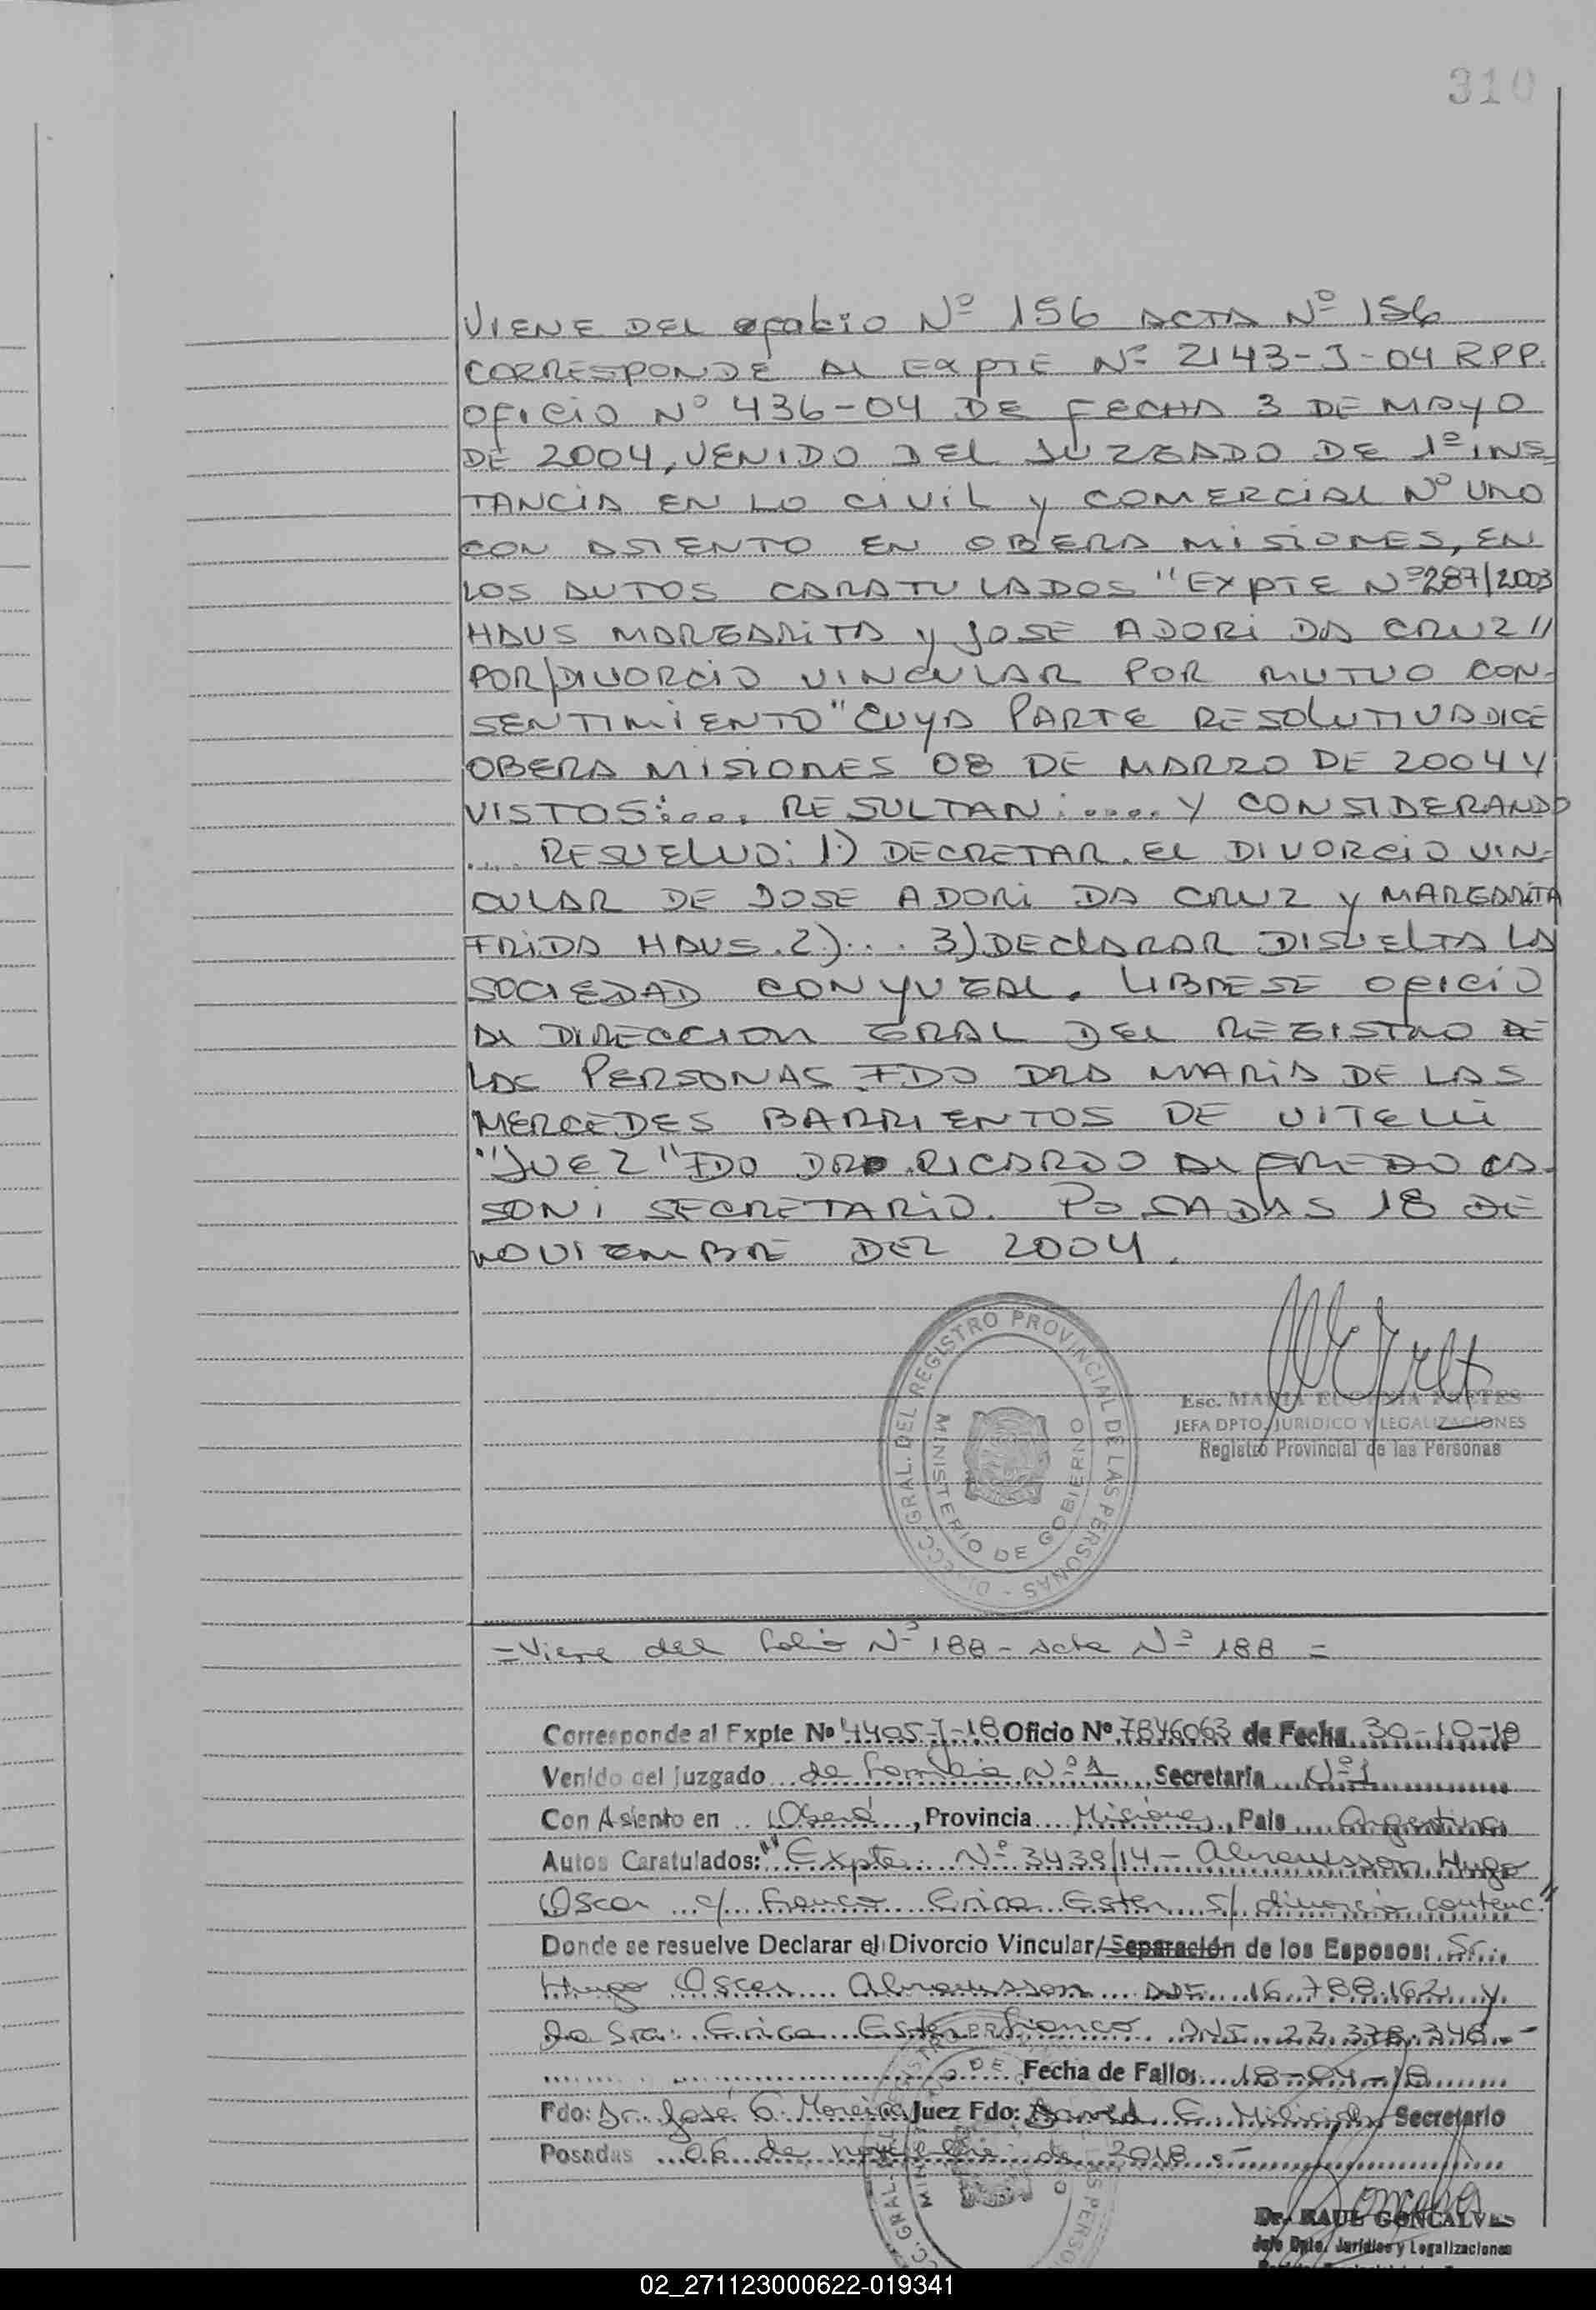 310
VIENE DEL folio Nº 156 ACTA Nº 156
CORRESPONDE AL EXPTE Nº 2143-J-04 RPP.
OFICIO Nº 436-04 DE FECHA 3 DE MAYO
DE 2004, VENIDO DEL JUZGADO DE 1º INS-
TANCIA EN LO CIVIL y COMERCIAL Nº UNO
CON ASIENTO EN OBERA MISIONES, EN
LOS AUTOS CARATULADOS "EXPTE Nº 287/2003
HAUS MARGARITA y JOSE ADORI DA CRUZ //
POR/DIVORCIO VINCULAR POR MUTUO CON-
SENTIMIENTO" CUYA PARTE RESOLUTIVA DICE
OBERA MISIONES 08 DE MARZO DE 2004 Y
VISTOS:.... RESULTAN:..... Y CONSIDERANDO
.... RESUELVO: 1) DECRETAR. EL DIVORCIO VIN-
CULAR DE JOSE ADORI DA CRUZ y MARGARITA
FRIDA HAUS. 2)... 3) DECLARAR DISUELTA LA
SOCIEDAD CONYUGAL. LIBRESE OFICIO
AL DIRECCION GRAL DEL REGISTRO DE
LAS PERSONAS. FDO DRA MARIA DE LAS
MERCEDES BARRIENTOS DE VITELLI
"JUEZ" FDO DR. RICARDO ALFREDO CA-
SONI SECRETARIO. POSADAS 18 DE
NOVIEMBRE DEL 2004.
DIRECC. GRAL. DEL REGISTRO PROVINCIAL DE LAS PERSONAS -
MINISTERIO DE GOBIERNO
Esc. MARIA EUGENIA
JEFA DPTO. JURIDICO Y LEGALIZACIONES
Registro Provincial de las Personas
= Viene del folio Nº 188 - Acta Nº 188 =
Corresponde al Expte Nº 4405-J-18 Oficio Nº 7846063 de Fecha 30-10-18
Venido del Juzgado de Familia Nº 1, Secretaria Nº 1
Con Asiento en Oberá, Provincia Misiones, Pais Argentina
Autos Caratulados: "Expte Nº 3439/14 - Abramsson Hugo
Oscar c/ Franco Erica Ester s/ divorcio contenc."
Donde se resuelve Declarar el Divorcio Vincular/Separación de los Esposos: Sr.
Hugo Oscar Abramsson DNI. 16.788.162 y
la Sra. Erica Ester Franco DNI. 23.378.348.-
Fecha de Fallo: 18-04-18
Fdo: Dr. José G. Moreira Juez Fdo: E. Secretario
Posadas 06 de noviembre de 2018.-
Dr. RAUL GONCALVES
Jefe Dpto. Juridico y Legalizaciones
02_271123000622-019341